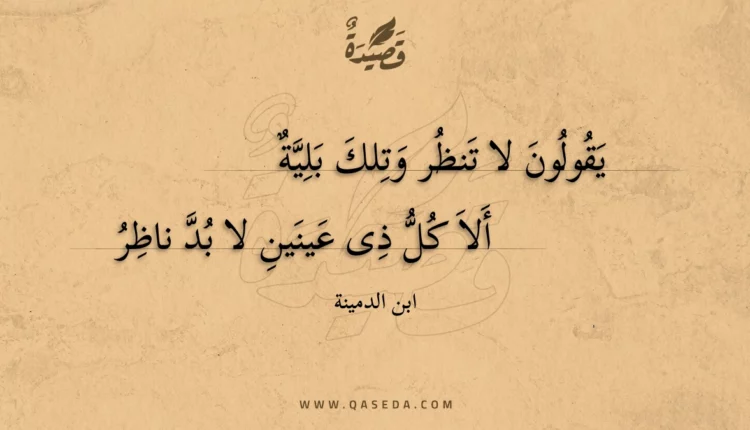 قَصِيدَةٌ
يَقُولُونَ لا تَنظُر وَتِلكَ بَلِيَّةٌ
أَلاَ كُلُّ ذِى عَينَينِ لا بُدَّ ناظِرُ
ابن الدمينة
WWW.QASEDA.COM